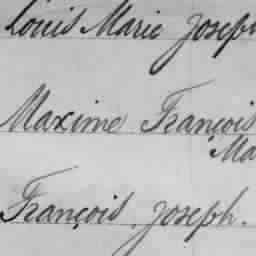 Louis Marie Joseph
Maxime François
Ma
François Joseph.